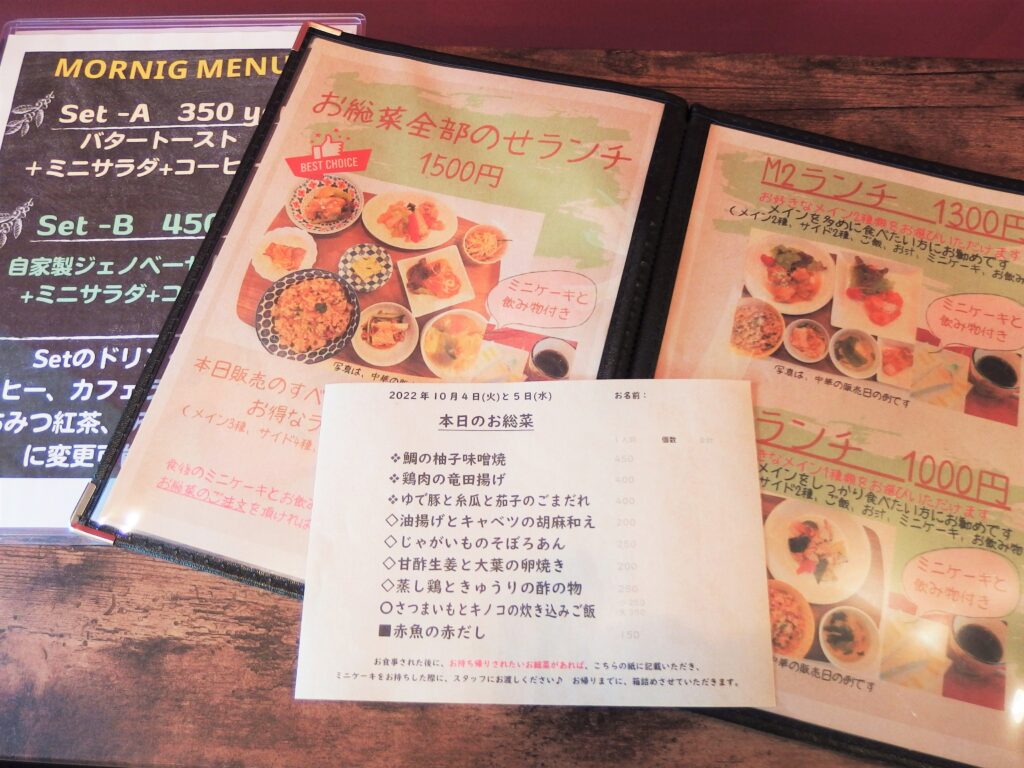 MORNIG MENU
Set -A 350 y
バタートースト
+ミニサラダ+コーヒ
Set -B 450
自家製ジェノベーゼ
+ミニサラダ+コ
Setのドリン
ヒー、カフェラ
ちみつ紅茶、
に変更可
お総菜全部のせランチ
1500円
BEST CHOICE
ミニケーキと
飲み物付き
写真は、中華の販
本日販売のすべ
お得なラ
(メイン3種、サイド4種、
食後のミニケーキとお飲み
お総菜のご注文を頂ければ
M2ランチ 1300円
お好きなメイン2種類をお選びいただけます
メインを多めに食べたい方にお勧めです
(メイン2種、サイド2種、ご飯、お汁、ミニケーキ、お飲み
ミニケーキと
飲み物付き
写真は、中華の販売日の例です
ランチ 1000円
きなメイン1種類をお選びいただけます
メインをしっかり食べたい方にお勧めです
サイド2種、ご飯、お汁、ミニケーキ、お飲み物
ミニケーキと
飲み物付き
中華の販売日の例です
2022年10月4日(火)と5日(水) お名前:
本日のお総菜
1人前 個数 合計
❖鯛の柚子味噌焼 450
❖鶏肉の竜田揚げ 400
❖ゆで豚と糸瓜と茄子のごまだれ 400
◇油揚げとキャベツの胡麻和え 200
◇じゃがいものそぼろあん 250
◇甘酢生姜と大葉の卵焼き 200
◇蒸し鶏ときゅうりの酢の物 250
○さつまいもとキノコの炊き込みご飯
■赤魚の赤だし 150
お食事された後に、お持ち帰りされたいお総菜があれば、こちらの紙に記載いただき、
ミニケーキをお持ちした際に、スタッフにお渡しください♪ お帰りまでに、箱詰めさせていただきます。